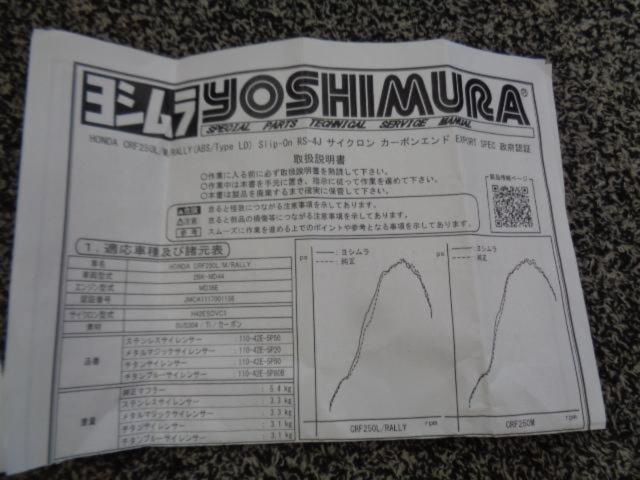 ヨシムラ YOSHIMURA®
SPECIAL PARTS TECHNICAL SERVICE MANUAL
HONDA CRF250L/M/RALLY(ABS/Type LD) Slip-On RS-4J サイクロン カーボンエンド EXPORT SPEC 政府認証
取扱説明書
○作業に入る前に必ず取扱説明書を熟読して下さい。
○作業中は本書を手元に置き、指示に従って作業を進めて下さい。
○本書は製品を廃棄するまで確実に保管して下さい。
製品情報ページ
⚠危険 怠ると怪我につながる注意事項を示してあります。
⚠注意 怠ると部品の損傷等につながる注意事項を示してあります。
参考 スムーズに作業を進める上でのポイントや参考となる事項を示してあります。
1. 適応車種及び諸元表
車名 HONDA CRF250L/M/RALLY
車両型式 2BK-MD44
エンジン型式 MD38E
認証番号 JMCA1117001156
サイクロン型式 H42ESCVC1
素材 SUS304/Ti/カーボン
品番
ステンレスサイレンサー :110-42E-5P50
メタルマジックサイレンサー :110-42E-5P20
チタンサイレンサー :110-42E-5P80
チタンブルーサイレンサー :110-42E-5P80B
重量
純正マフラー : 5.4kg
ステンレスサイレンサー : 3.3kg
メタルマジックサイレンサー : 3.3kg
チタンサイレンサー : 3.1kg
チタンブルーサイレンサー : 3.1kg
ps
ヨシムラ
純正
rpm
CRF250L/RALLY
ps
ヨシムラ
純正
rpm
CRF250M